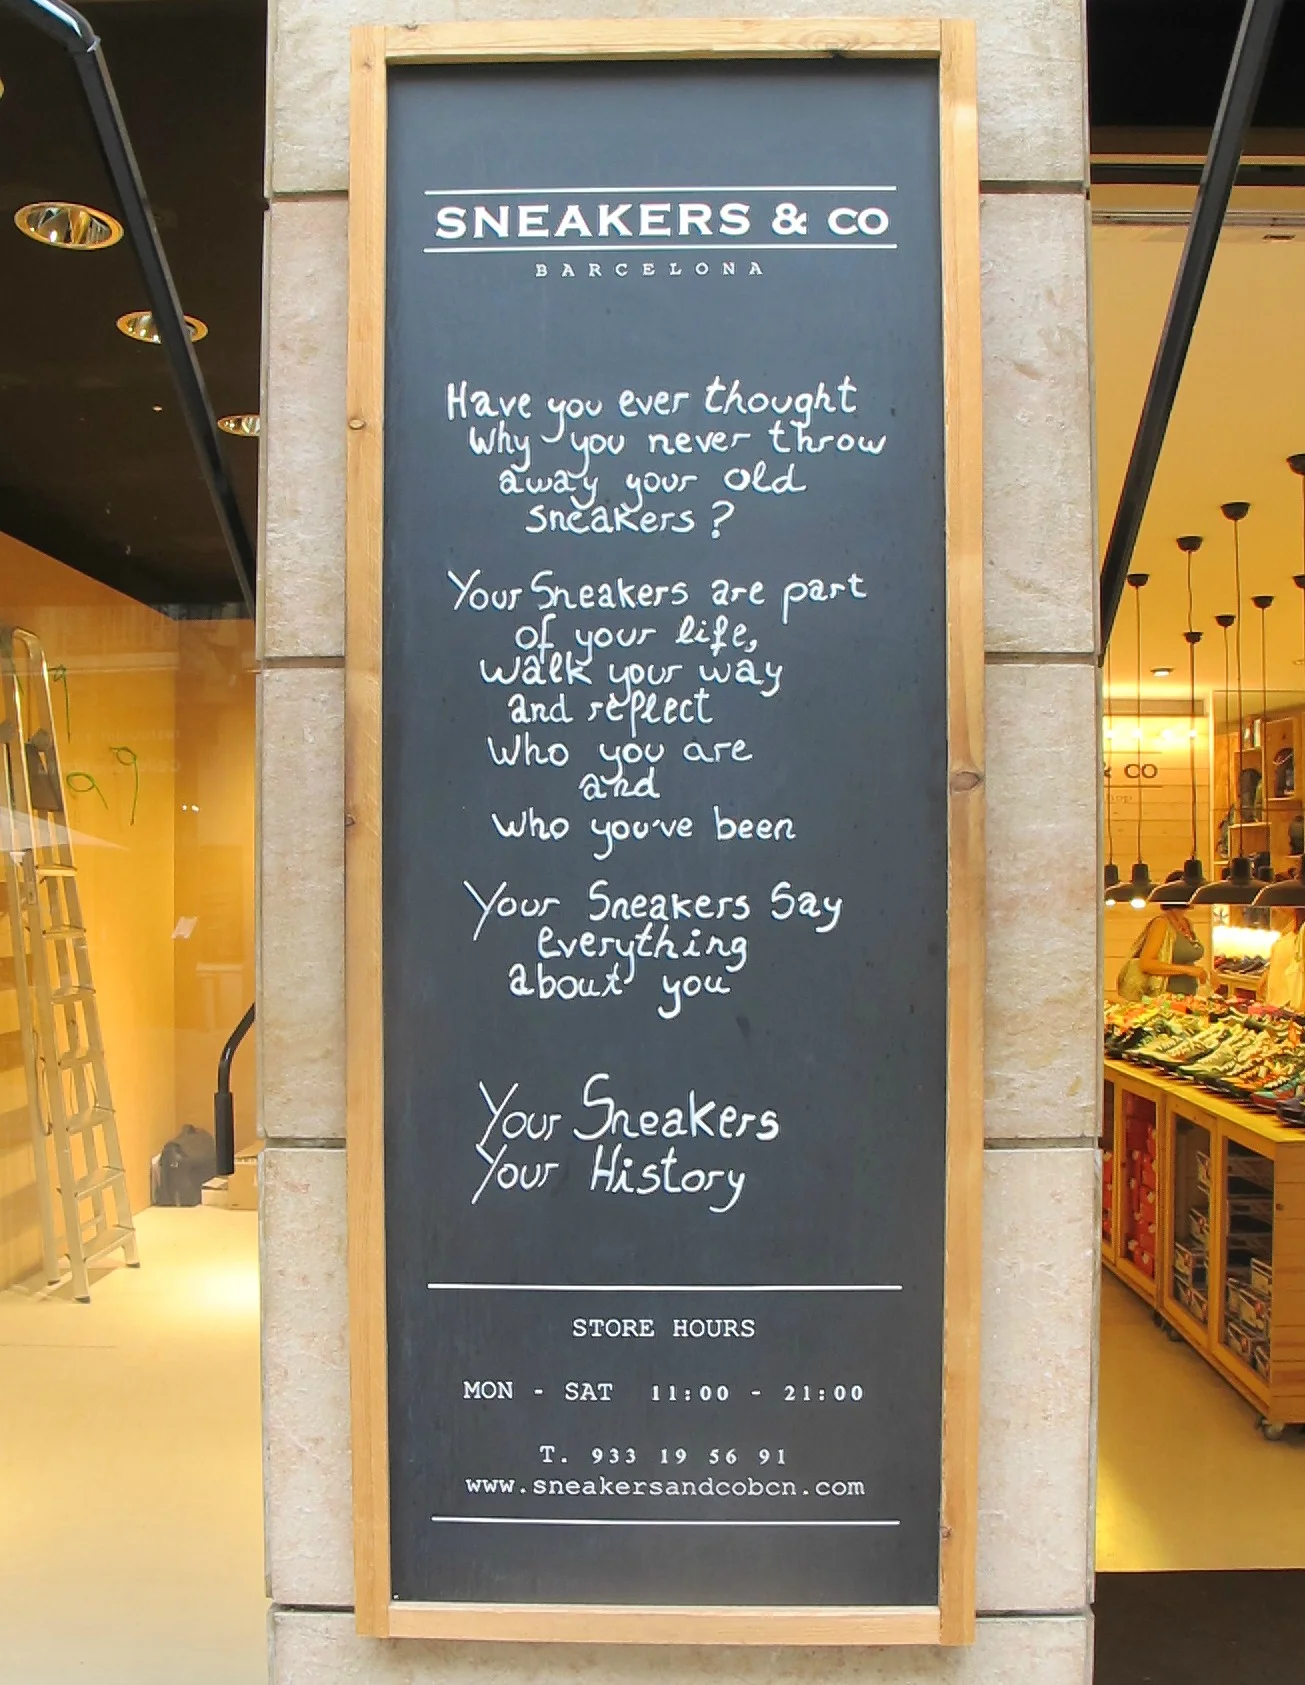 SNEAKERS & CO
BARCELONA
Have you ever thought
Why you never throw
away your old
sneakers ?
Your Sneakers are part
of your life,
walk your way
and reflect
Who you are
and
Who you've been
Your Sneakers Say
everything
about you
Your Sneakers
Your History
STORE HOURS
MON - SAT 11:00 - 21:00
T. 933 19 56 91
www.sneakersandcobcn.com
& CO